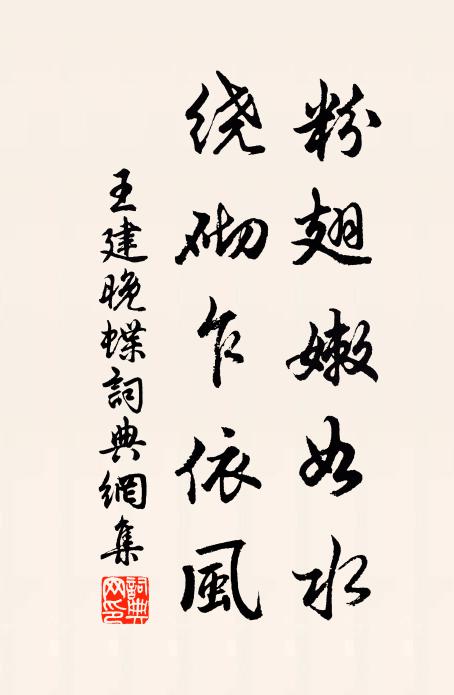 粉翅嫩如水
绕砌乍依风
王建晚蝶詞典網集
詞典網印